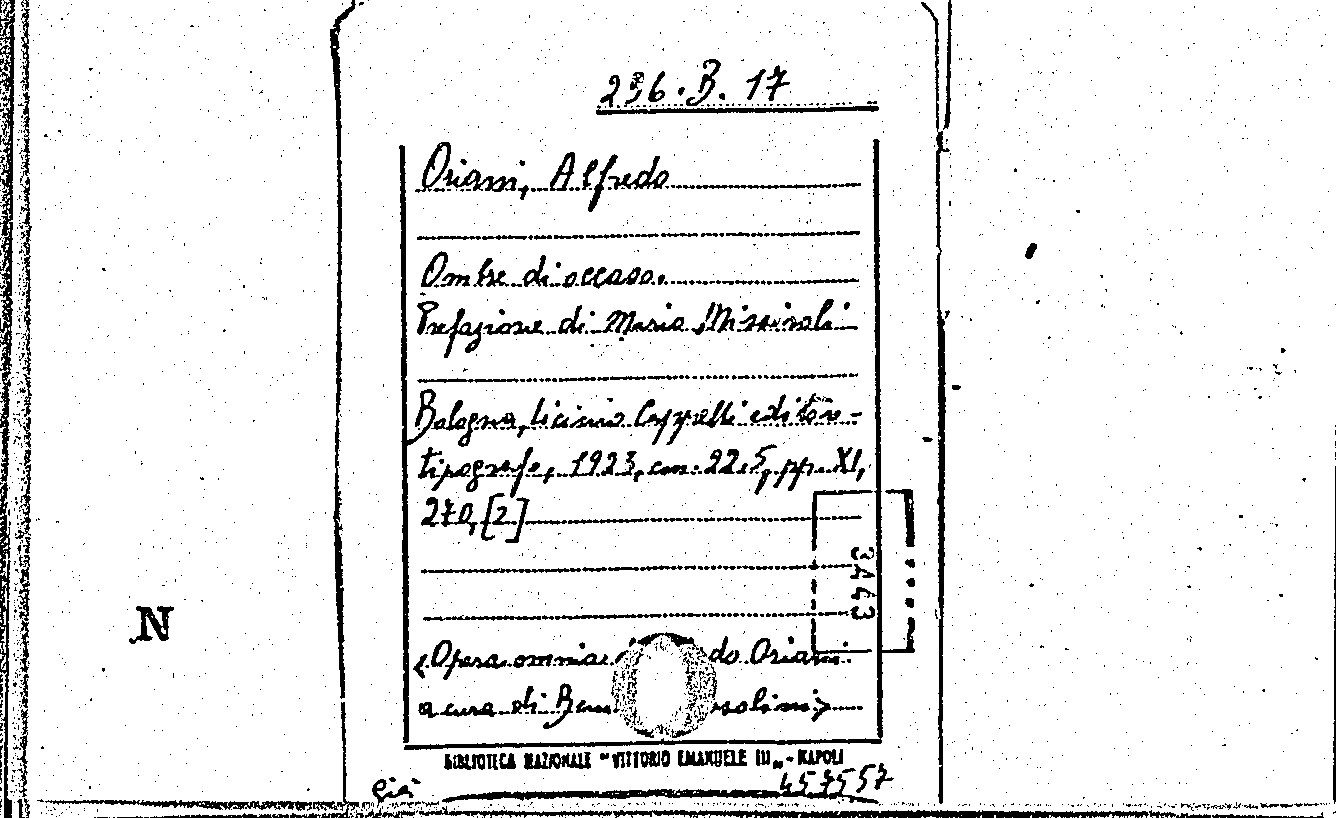 296.B.17
Oriani, Alfredo
Ombre di occaso.
Prefazione di Mario Missiroli
Bologna, Licinio Cappelli editore-
tipografo, 1923, cm. 22.5, pp. XI,
270, [2]
3443
N
«Opera omnia do Oriani
a cura di Ben solini»
BIBLIOTECA NAZIONALE "VITTORIO EMANUELE III" - NAPOLI
già 457557